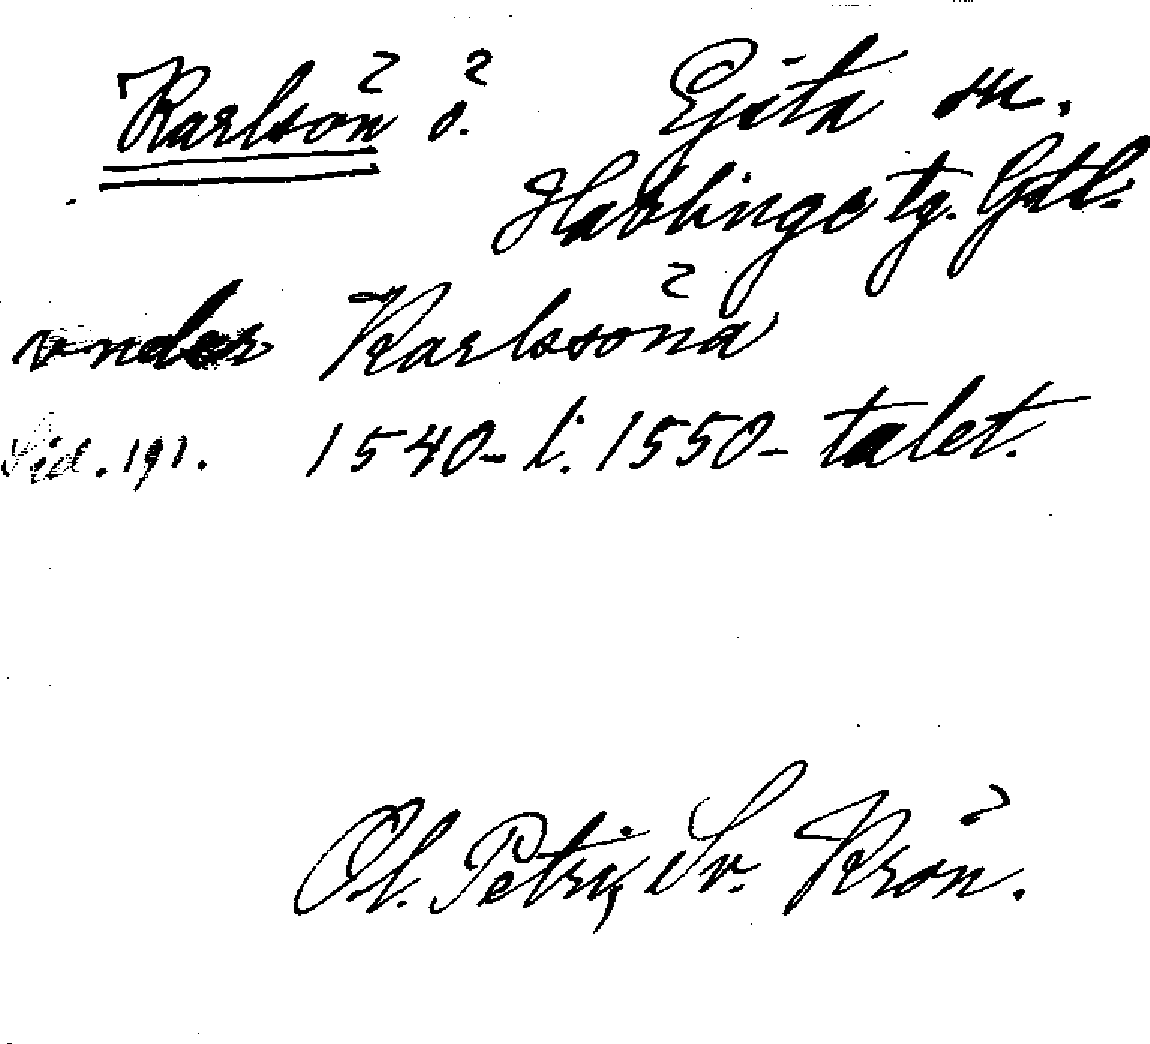 Karlsön ö. Ejsta sn.
Hablinge tg. Gtl.
vnder Karlsöna
Sid. 191. 1540- l. 1550-talet.
Ol. Petri, Sv. Krön.